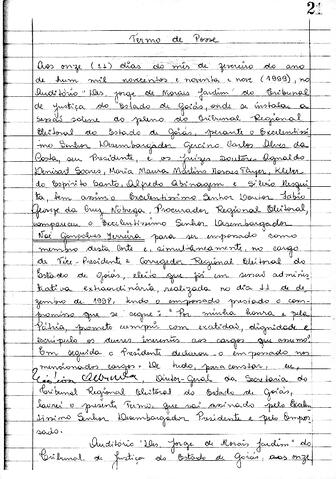 21
Termo de Posse
Aos onze (11) dias do mês de fevereiro do ano
de hum mil novecentos e noventa e nove (1999), no
Auditório "Des. Jorge de Morais Jardim" do Tribunal
de Justiça do Estado de Goiás, onde se instala a
sessão solene do pleno do Tribunal Regional
Eleitoral do Estado de Goiás, perante o Excelentíssi-
mo Senhor Desembargador Gercino Carlos Alves da
Costa, seu Presidente, e os juízes doutores
Denisart Soares, Maria Maura Martins Moraes Tayer, Kleber
do Espírito Santo, Alfredo Abinagem e Silvio Mesqui-
ta, bem assim o Excelentíssimo Senhor Doutor Fábio
George da Cruz Nóbrega, Procurador Regional Eleitoral,
compareceu o Excelentíssimo Senhor Desembargador
Noé Gonçalves Ferreira para ser empossado como
membro desta Corte e, simultaneamente, no cargo
de Vice-Presidente e Corregedor Regional Eleitoral do
Estado de Goiás, eleito que foi em sessão adminis-
trativa extraordinária, realizada no dia 11 de de-
zembro de 1998, tendo o empossado prestado o com-
promisso que se segue: "Por minha honra e pela
Pátria, prometo cumprir com exatidão, dignidade e
escrúpulo os deveres inerentes aos cargos que assumo".
Em seguida o Presidente declarou o empossado nos
mencionados cargos. De tudo, para constar, eu,
Diretor-Geral da Secretaria do
Tribunal Regional Eleitoral do Estado de Goiás,
lavrei o presente Termo que vai assinado pelo Excelen-
tíssimo Senhor Desembargador Presidente e pelo Empos-
sado.
Auditório "Des. Jorge de Morais Jardim" do
Tribunal de Justiça do Estado de Goiás, aos onze